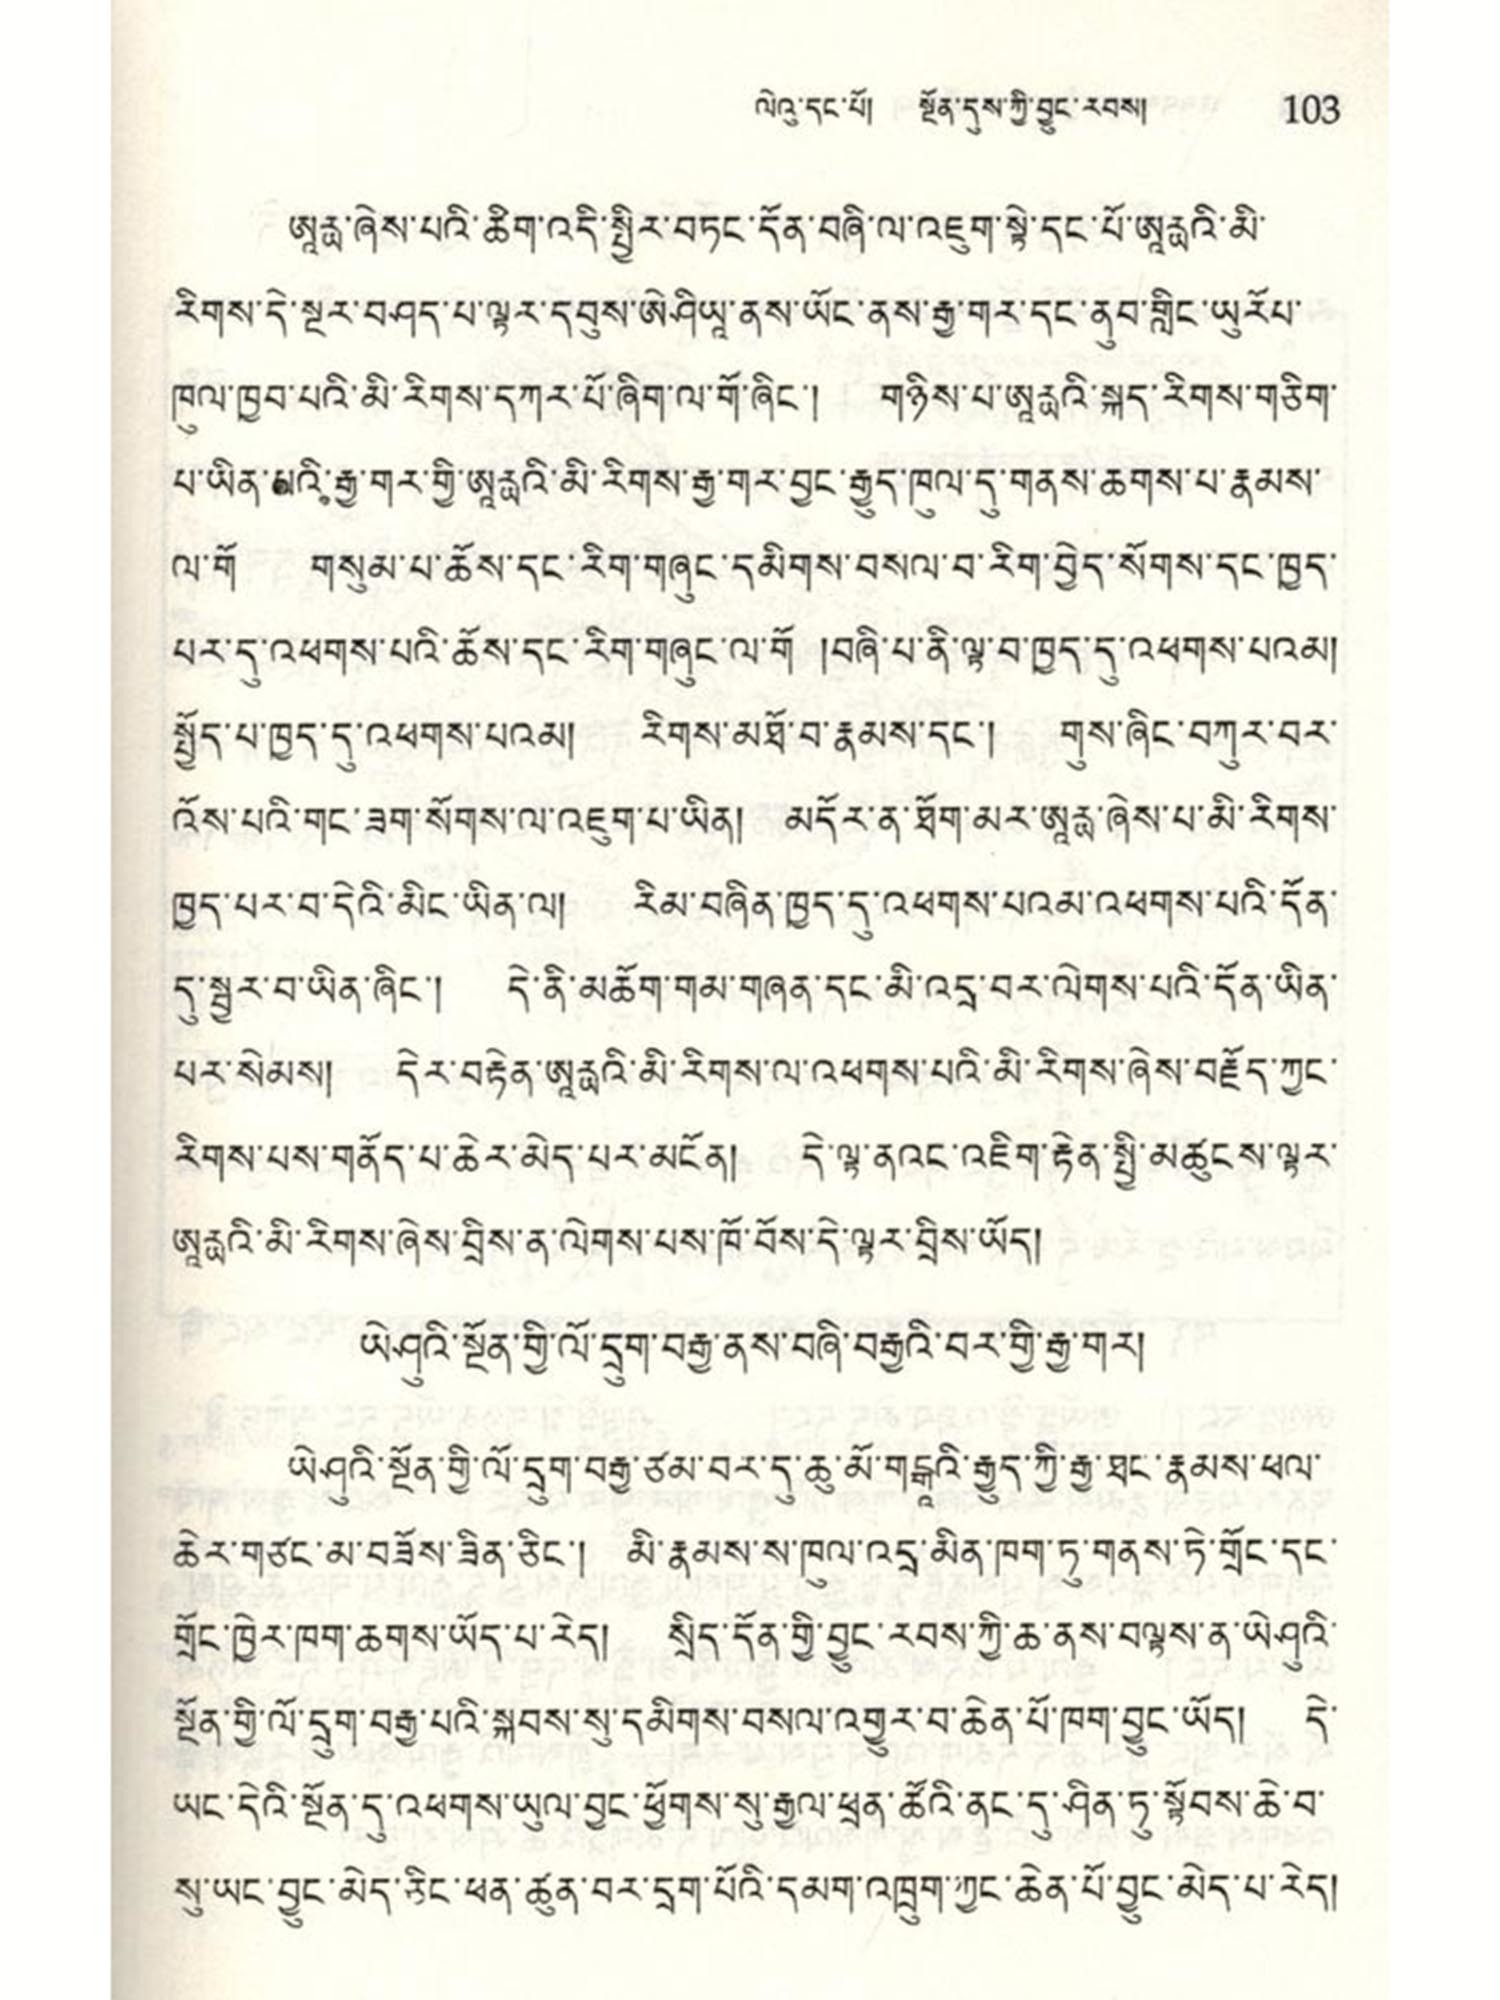 ལེའུ་དང་པོ། སྔོན་དུས་ཀྱི་བྱུང་རབས། 103
ཨཱརྻ་ཞེས་པའི་ཚིག་འདི་སྤྱིར་བཏང་དོན་བཞི་ལ་འཇུག་སྟེ་དང་པོ་ཨཱརྻའི་མི་
རིགས་དེ་སྔར་བཤད་པ་ལྟར་དབུས་ཨེ་ཤིཡཱ་ནས་ཡོང་ནས་རྒྱ་གར་དང་ནུབ་གླིང་ཡུརོཔ་
ཁུལ་ཁྱབ་པའི་མི་རིགས་དཀར་པོ་ཞིག་ལ་གོ་ཞིང་། གཉིས་པ་ཨཱརྻའི་སྐད་རིགས་གཅིག་
པ་ཡིན་པའི་རྒྱ་གར་གྱི་ཨཱརྻའི་མི་རིགས་རྒྱ་གར་བྱང་རྒྱུད་ཁུལ་དུ་གནས་ཆགས་པ་རྣམས་
ལ་གོ གསུམ་པ་ཆོས་དང་རིག་གཞུང་དམིགས་བསལ་བ་རིག་བྱེད་སོགས་དང་ཁྱད་
པར་དུ་འཕགས་པའི་ཆོས་དང་རིག་གཞུང་ལ་གོ །བཞི་པ་ནི་ལྟ་བ་ཁྱད་དུ་འཕགས་པའམ།
སྤྱོད་པ་ཁྱད་དུ་འཕགས་པའམ། རིགས་མཐོ་བ་རྣམས་དང་། གུས་ཞིང་བཀུར་བར་
འོས་པའི་གང་ཟག་སོགས་ལ་འཇུག་པ་ཡིན། མདོར་ན་ཐོག་མར་ཨཱརྻ་ཞེས་པ་མི་རིགས་
ཁྱད་པར་བ་དེའི་མིང་ཡིན་ལ། རིམ་བཞིན་ཁྱད་དུ་འཕགས་པའམ་འཕགས་པའི་དོན་
དུ་སྦྱར་བ་ཡིན་ཞིང་། དེ་ནི་མཆོག་གམ་གཞན་དང་མི་འདྲ་བར་ལེགས་པའི་དོན་ཡིན་
པར་སེམས། དེར་བརྟེན་ཨཱརྻའི་མི་རིགས་ལ་འཕགས་པའི་མི་རིགས་ཞེས་བརྗོད་ཀྱང་
རིགས་པས་གནོད་པ་ཆེར་མེད་པར་མངོན། དེ་ལྟ་ནའང་འཇིག་རྟེན་སྤྱི་མཚུངས་ལྟར་
ཨཱརྻའི་མི་རིགས་ཞེས་བྲིས་ན་ལེགས་པས་ཁོ་བོས་དེ་ལྟར་བྲིས་ཡོད།
ཡེ་ཤུའི་སྔོན་གྱི་ལོ་དྲུག་བརྒྱ་ནས་བཞི་བརྒྱའི་བར་གྱི་རྒྱ་གར།
ཡེ་ཤུའི་སྔོན་གྱི་ལོ་དྲུག་བརྒྱ་ཙམ་བར་དུ་ཆུ་མོ་གངྒཱའི་རྒྱུད་ཀྱི་རྒྱ་ཐང་རྣམས་ཕལ་
ཆེར་གཙང་མ་བཟོས་ཟིན་ཅིང་། མི་རྣམས་ས་ཁུལ་འདྲ་མིན་ཁག་ཏུ་གནས་ཏེ་གྲོང་དང་
གྲོང་ཁྱེར་ཁག་ཆགས་ཡོད་པ་རེད། སྲིད་དོན་གྱི་བྱུང་རབས་ཀྱི་ཆ་ནས་བལྟས་ན་ཡེ་ཤུའི་
སྔོན་གྱི་ལོ་དྲུག་བརྒྱ་པའི་སྐབས་སུ་དམིགས་བསལ་འགྱུར་བ་ཆེན་པོ་ཁག་བྱུང་ཡོད། དེ་
ཡང་དེའི་སྔོན་དུ་འཕགས་ཡུལ་བྱང་ཕྱོགས་སུ་རྒྱལ་ཕྲན་ཚོའི་ནང་དུ་ཤིན་ཏུ་སྟོབས་ཆེ་བ་
སུ་ཡང་བྱུང་མེད་ཅིང་ཕན་ཚུན་བར་དྲག་པོའི་དམག་འཁྲུག་ཀྱང་ཆེན་པོ་བྱུང་མེད་པ་རེད།